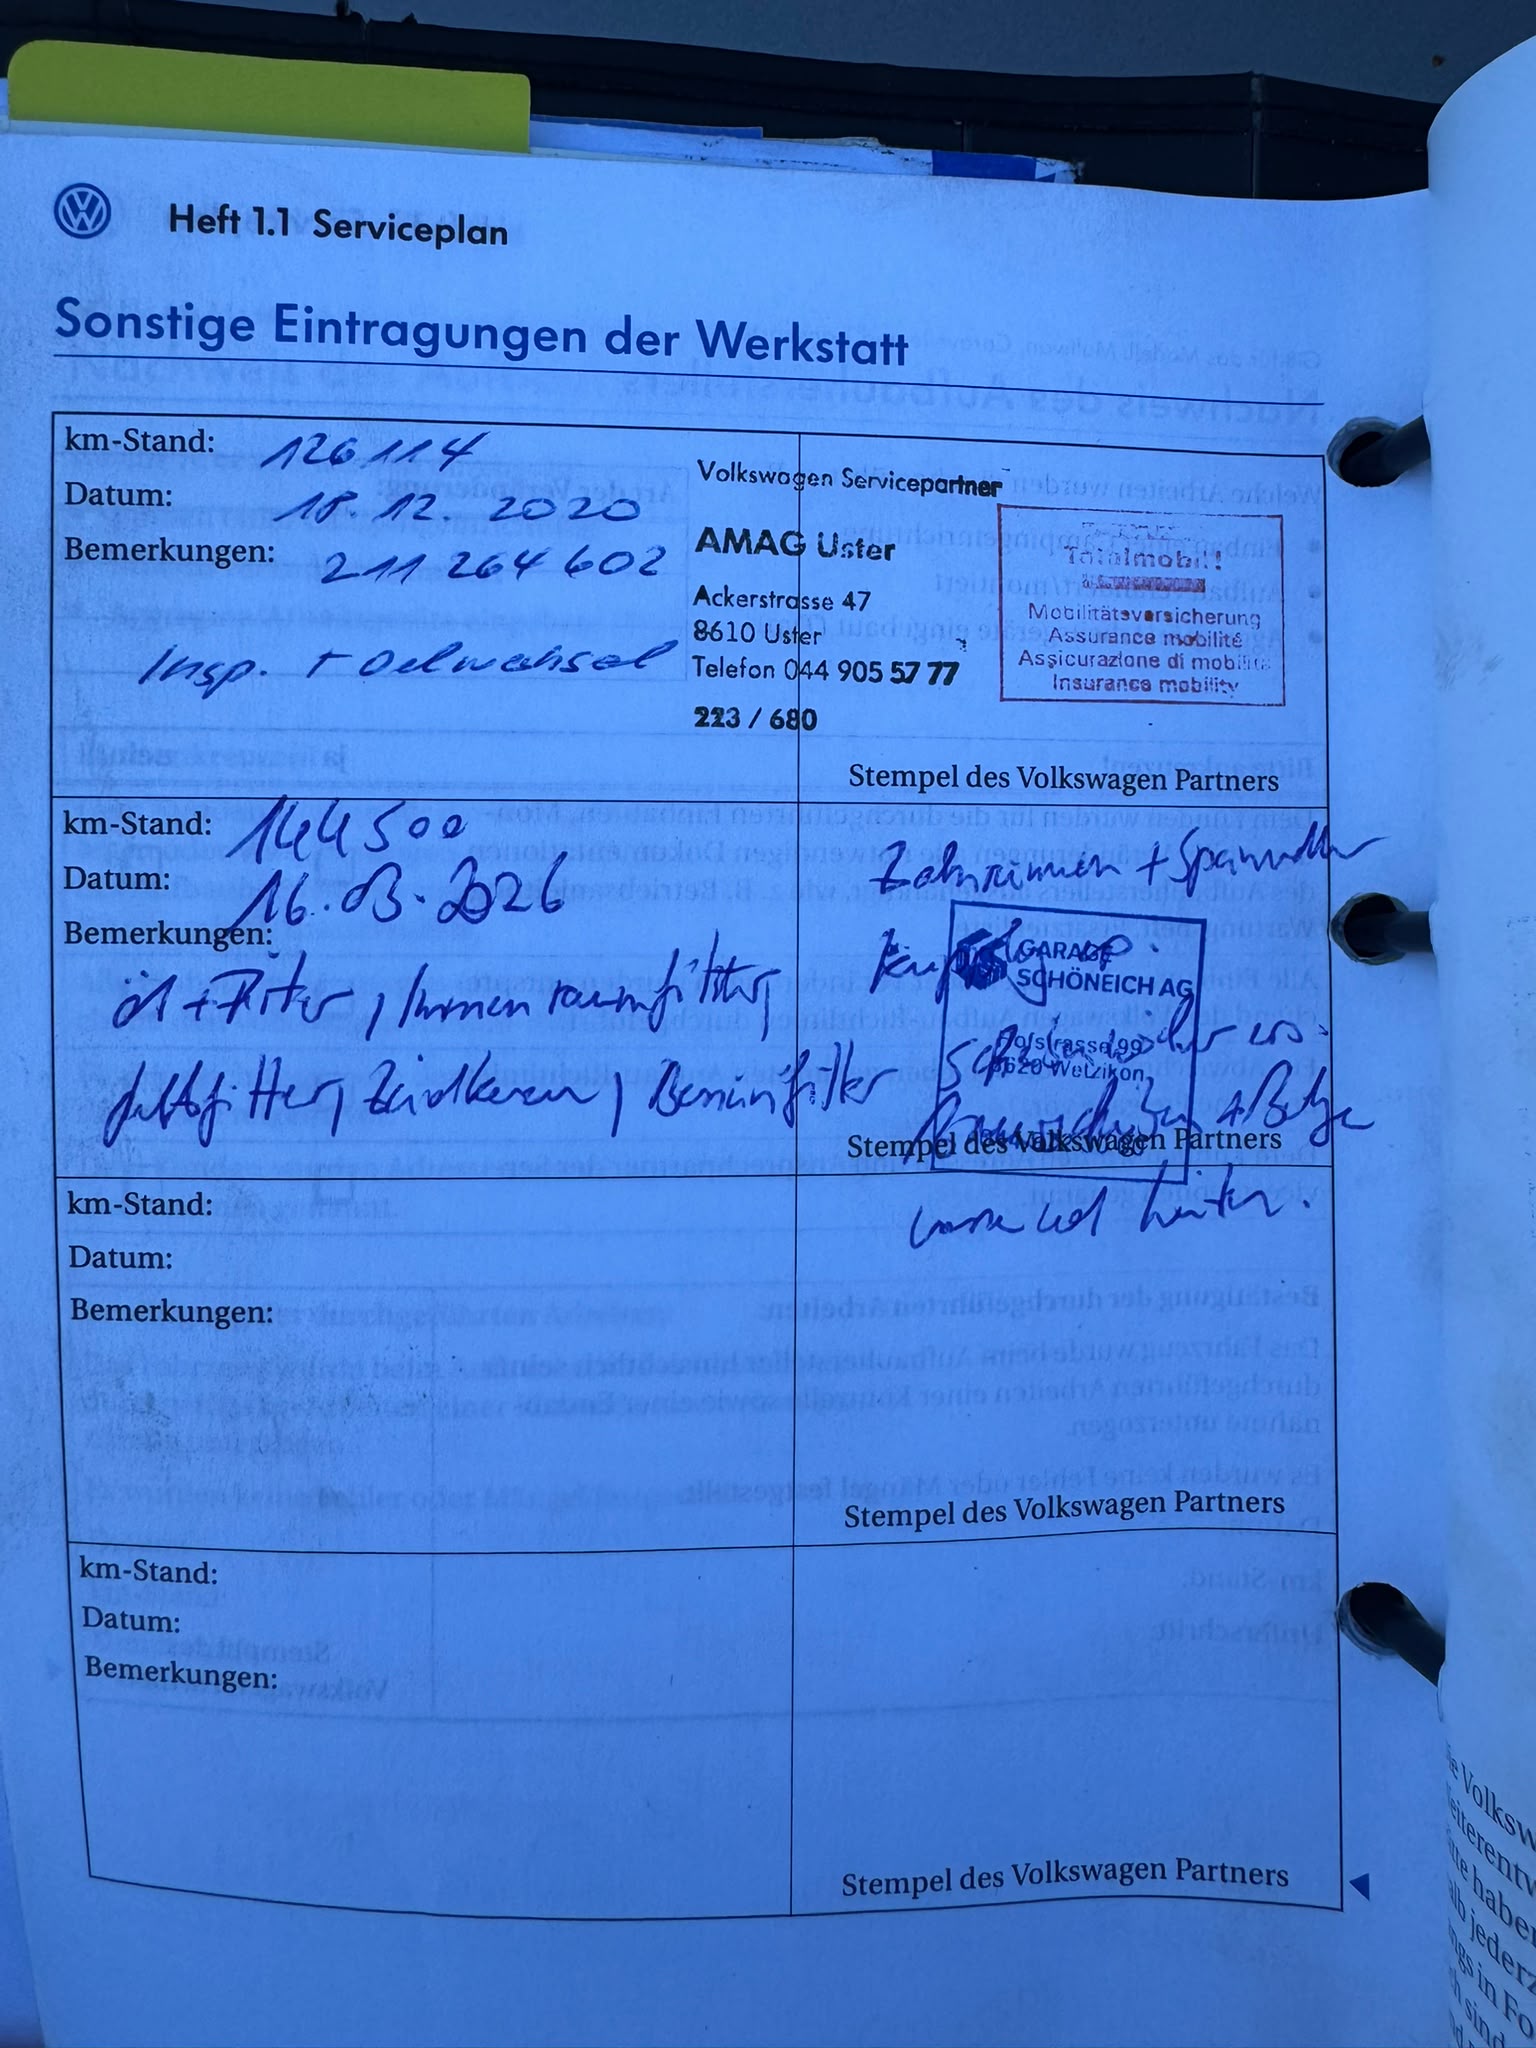 Heft 1.1 Serviceplan
Sonstige Eintragungen der Werkstatt
km-Stand: 126114
Datum: 18.12.2020
Bemerkungen: 211 264 602
Insp. + Oelwechsel
Volkswagen Servicepartner
AMAG Uster
Ackerstrasse 47
8610 Uster
Telefon 044 905 57 77
223 / 680
Totalmobil!
Mobilitätsversicherung
Assurance mobilité
Assicurazione di mobilità
Insurance mobility
Stempel des Volkswagen Partners
km-Stand: 144500
Datum: 16.03.2026
Bemerkungen:
öl + Filter, Innenraumfilter,
Luftfilter, Zündkerzen, Benzinfilter
Zahnriemen + Spannroller
GARAGE
SCHÖNEICH AG
Wetzikon
+ Beläge
vorne und hinten.
Stempel des Volkswagen Partners
km-Stand:
Datum:
Bemerkungen:
Stempel des Volkswagen Partners
km-Stand:
Datum:
Bemerkungen:
Stempel des Volkswagen Partners